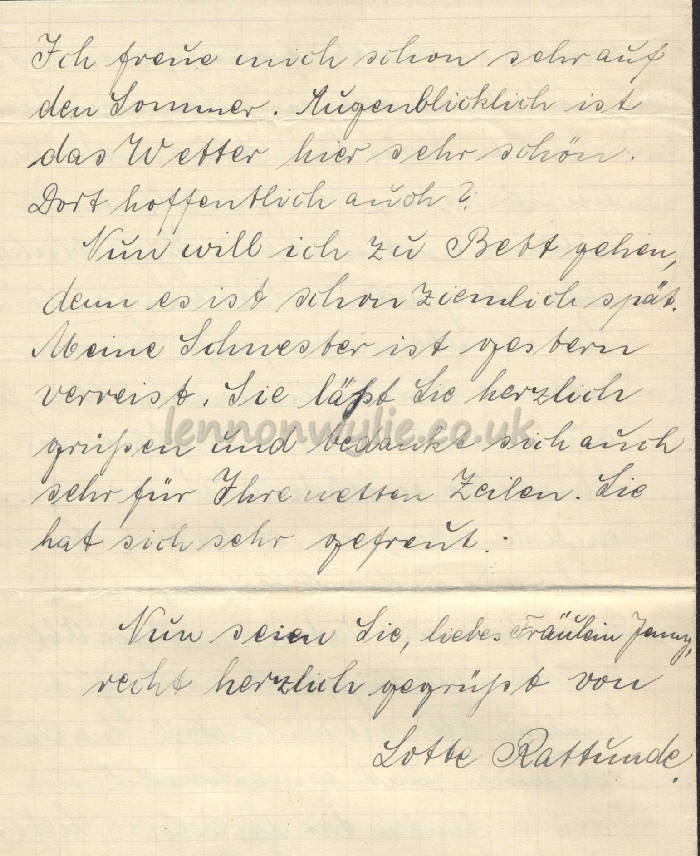 Ich freue mich schon sehr auf
den Sommer. Augenblicklich ist
das Wetter hier sehr schön.
Dort hoffentlich auch?
Nun will ich zu Bett gehen,
denn es ist schon ziemlich spät.
Meine Schwester ist gestern
verreist. Sie läßt Sie herzlich
grüßen und bedankt sich auch
sehr für Ihre netten Zeilen. Sie
hat sich sehr gefreut.
Nun seien Sie, liebes Fräulein Jenny,
recht herzlich gegrüßt von
Lotte Rattunde.
lennonwylie.co.uk